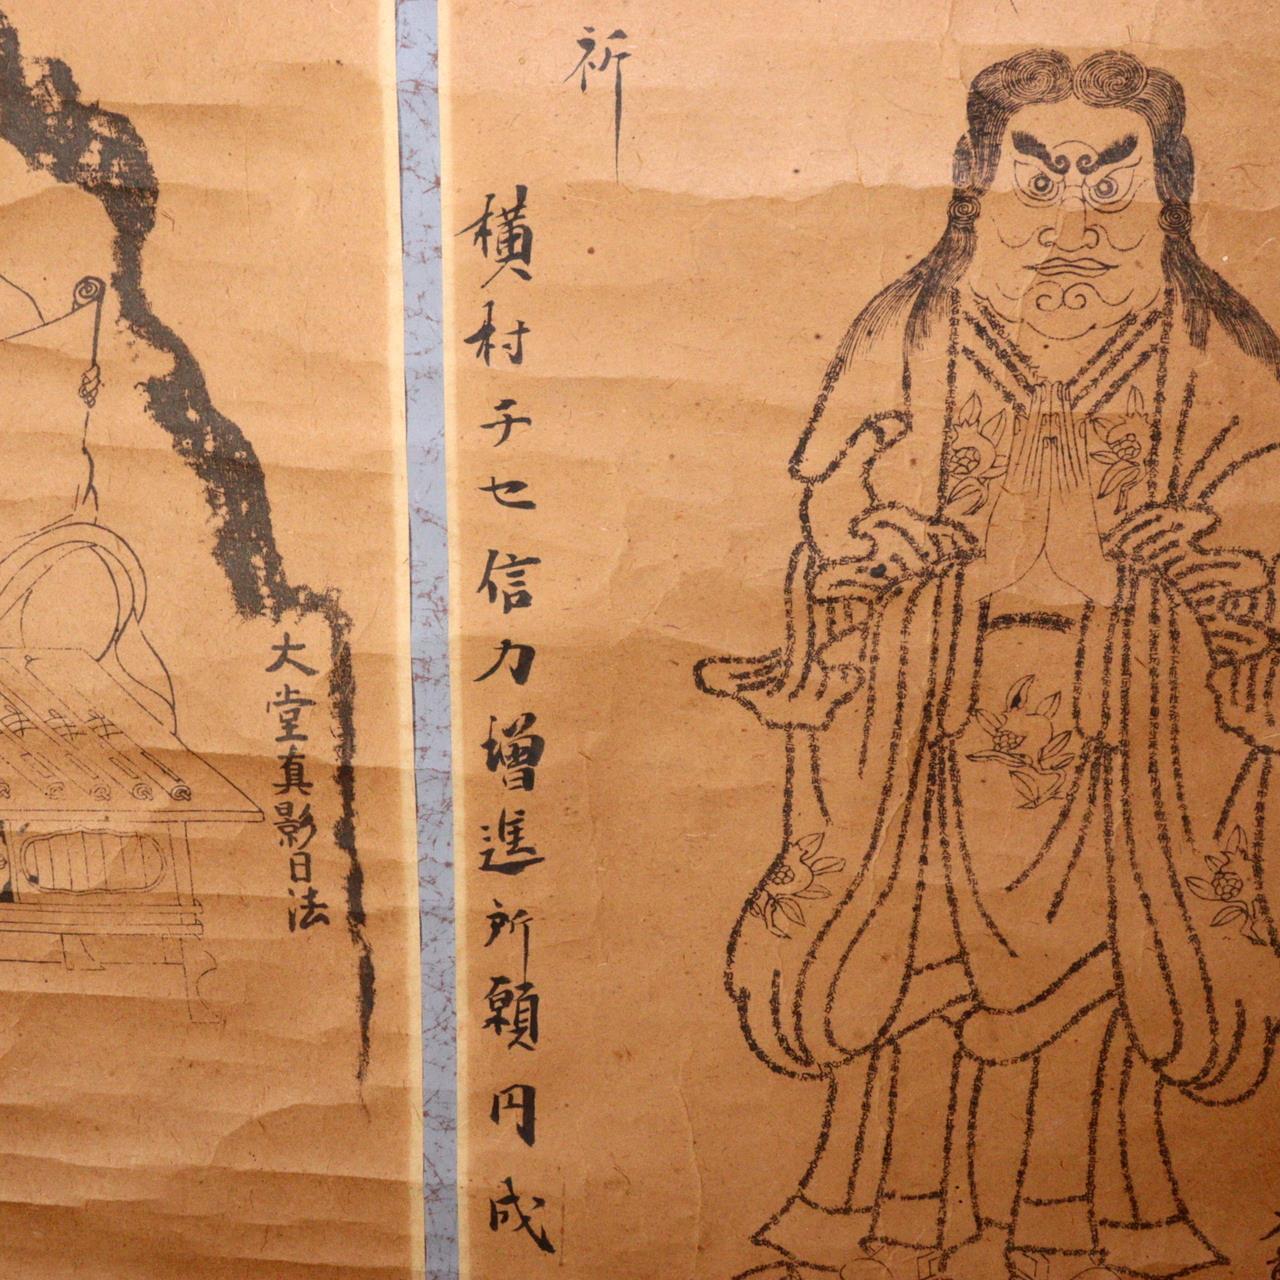 祈
横村チセ信力増進所願円成
大堂真影日法